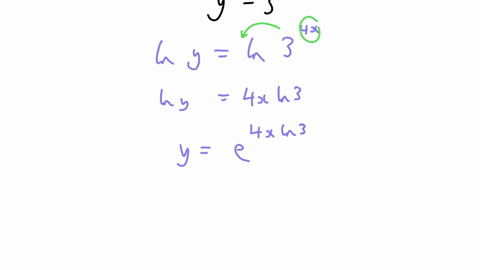 y = 3
ln y = ln 3^{4x}
ln y = 4x ln 3
y = e^{4x ln 3}